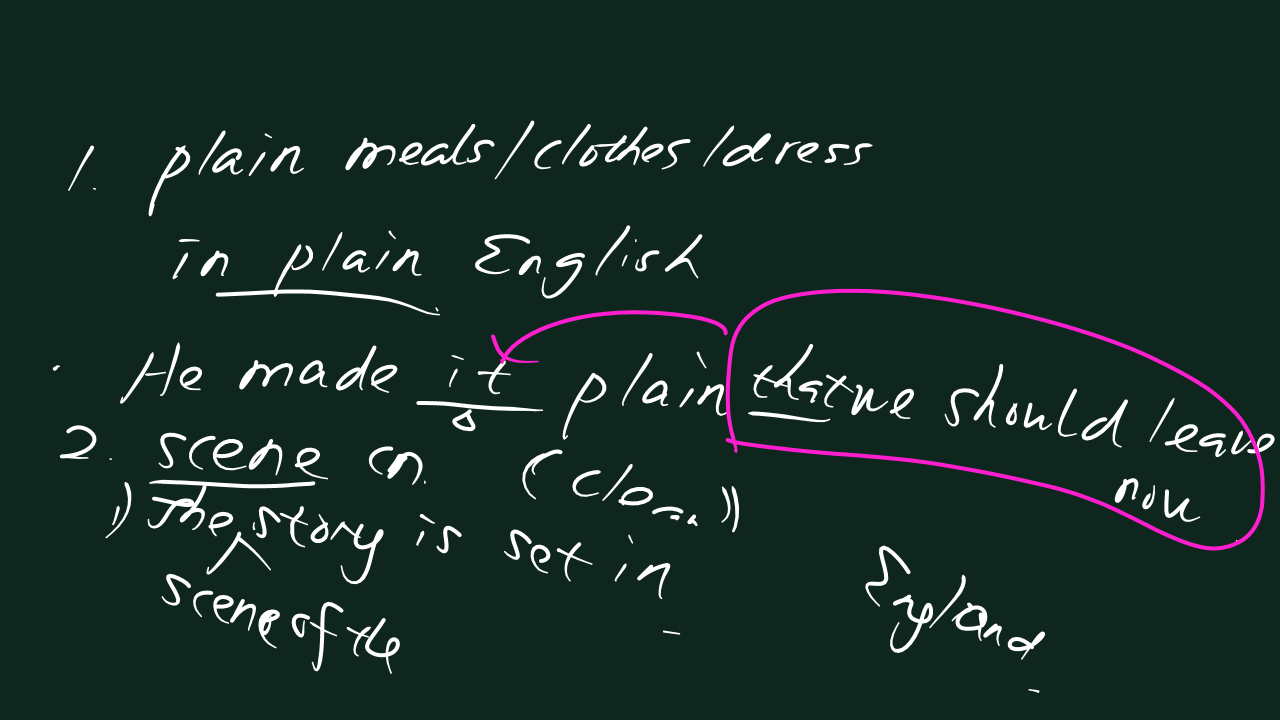 1. plain meals/clothes/dress
in plain English
· He made it plain that we should leave
now
2. scene cn.
1) The story is set in England
scene of the